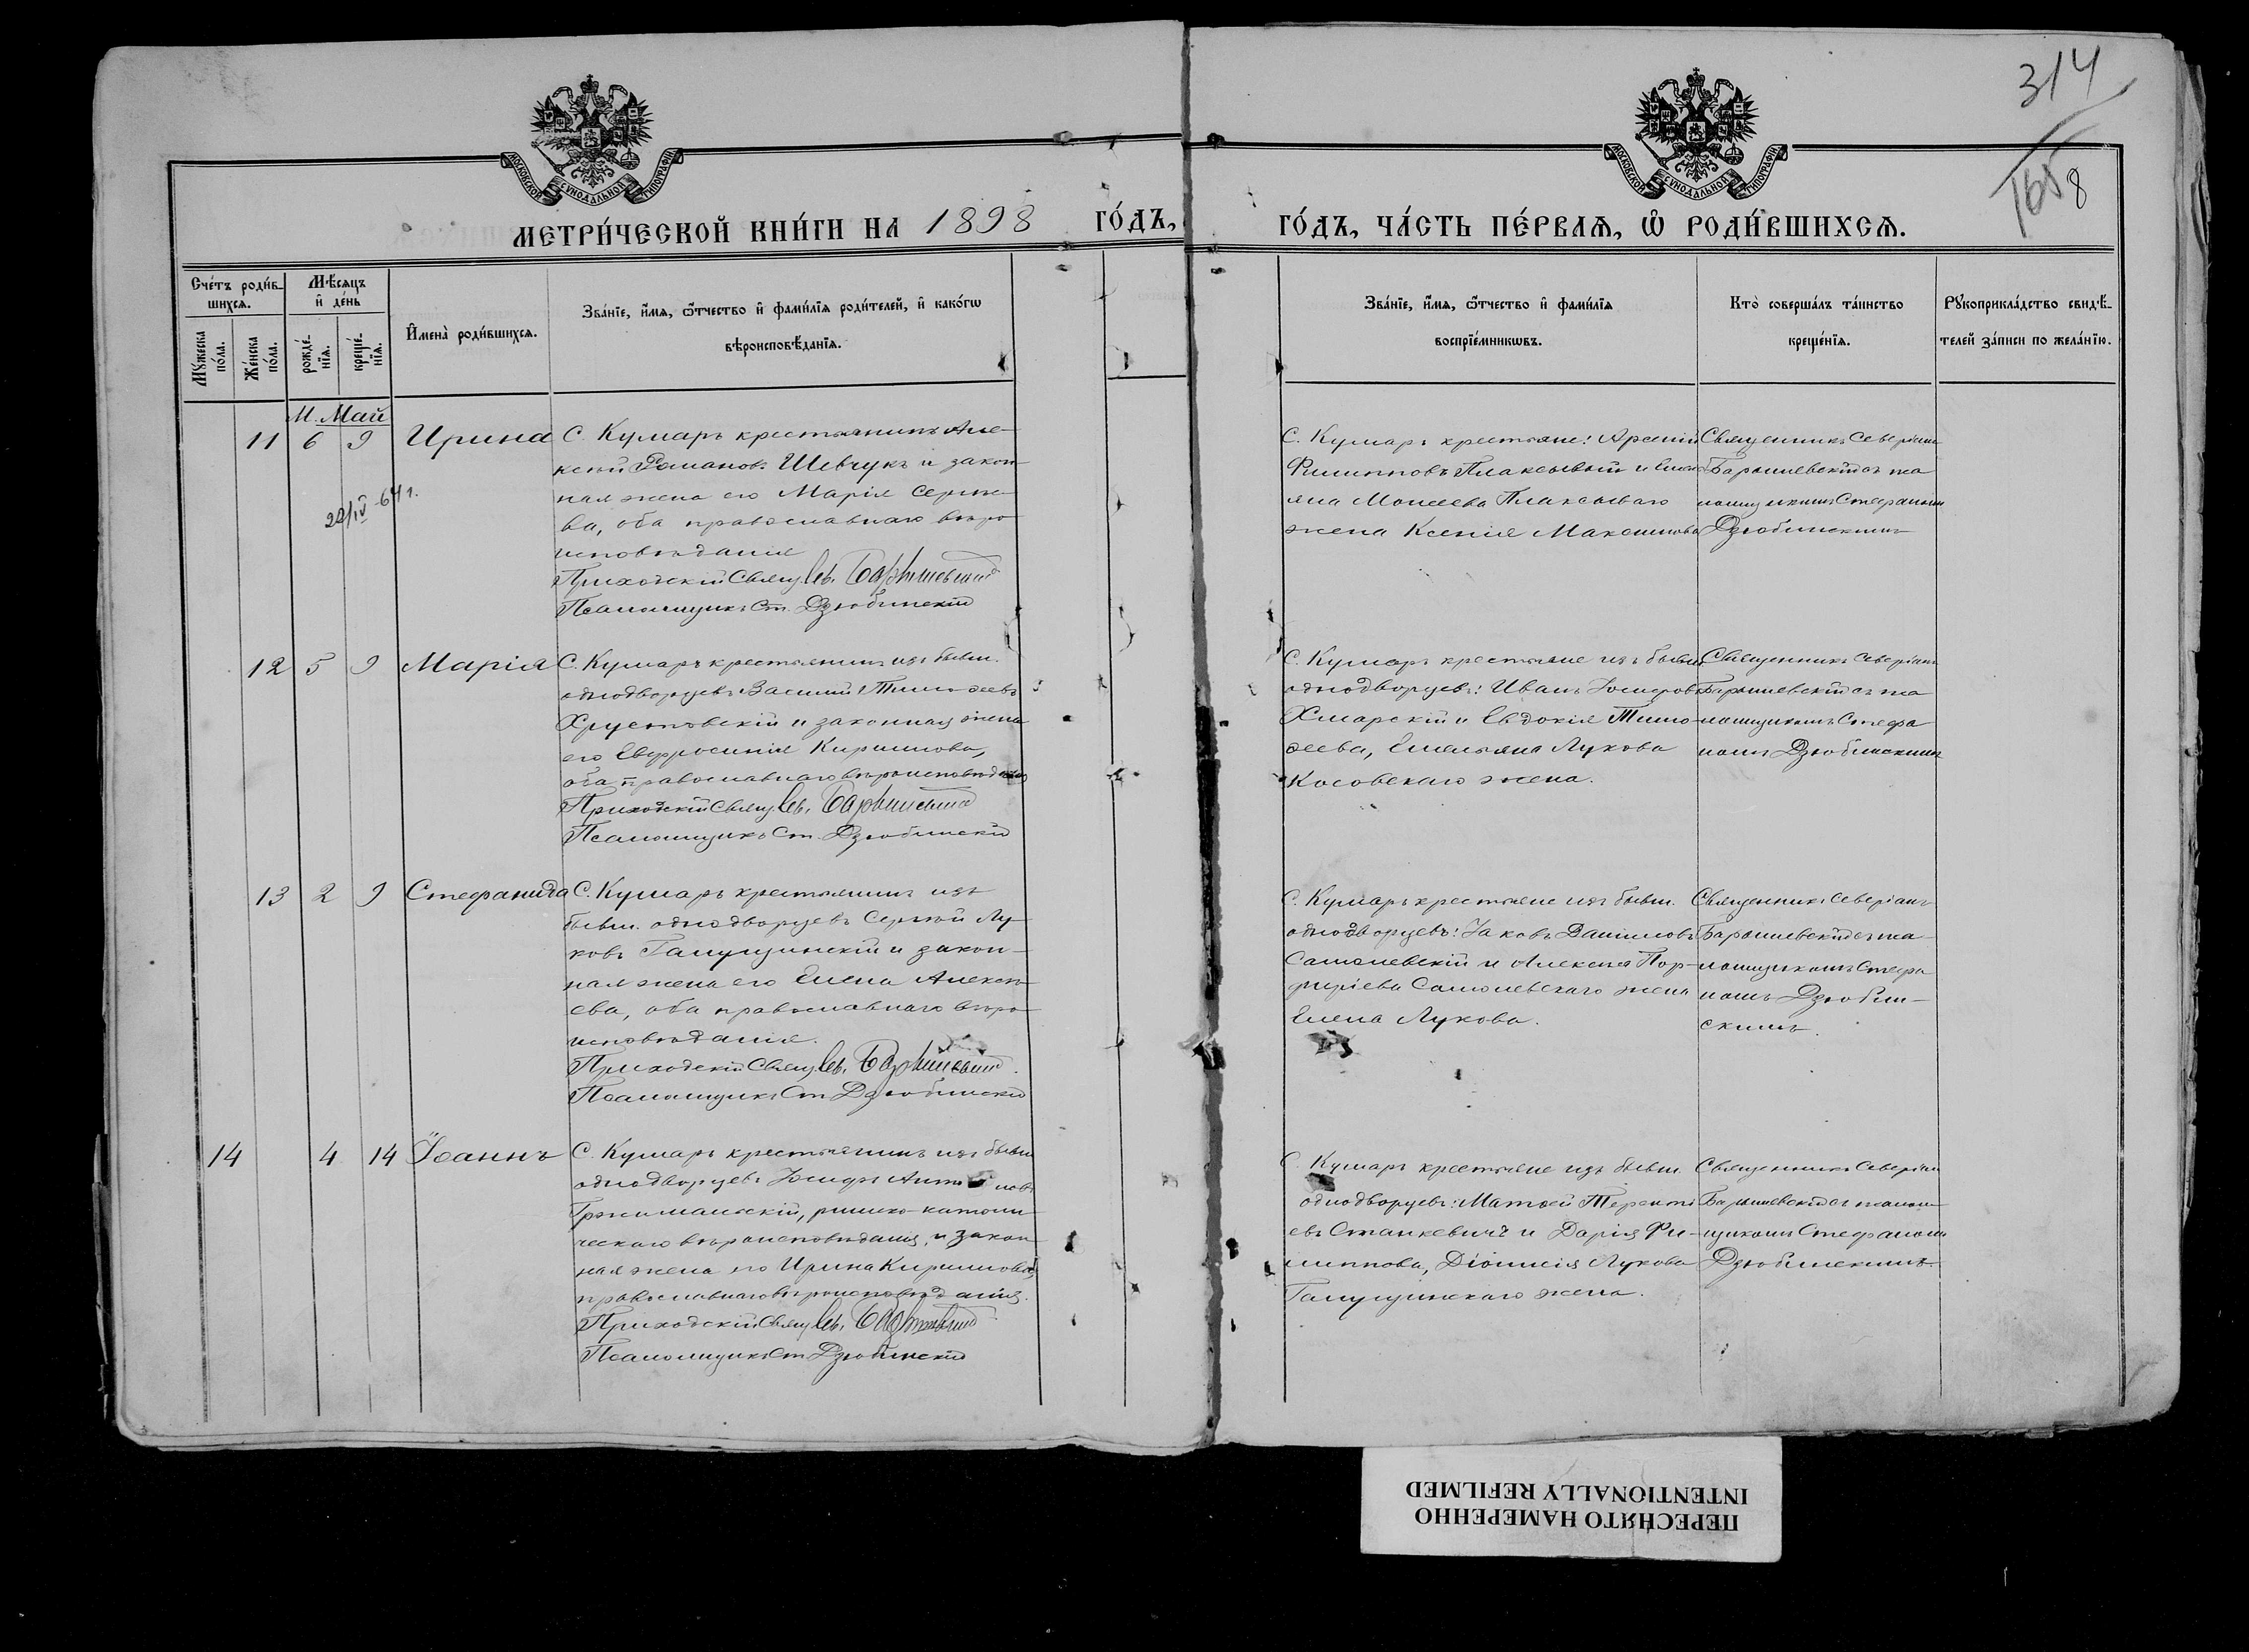 314
165 8
МОСКОВСКОЙ СѴНОДАЛЬНОЙ ТИПОГРАФІИ
МОСКОВСКОЙ СѴНОДАЛЬНОЙ ТИПОГРАФІИ
МЕТРИ́ЧЕСКОЙ КНИ́ГИ НА 1898 ГО́ДЪ,
ГО́ДЪ, ЧА́СТЬ ПЕ́РВАЯ, Ѽ РОДИ́ВШИХСЯ.
Сче́тъ роди́в-
шихся.
Мѣ́сяцъ
и҆ де́нь
Мꙋ́жеска
по́ла.
Же́нска
по́ла.
рожде́-
нїя.
креще́-
нїя.
И҆мена̀ роди́вшихся.
Зва́нїе, и҆́мя, ѻ҆́тчество и҆ фами́лїя роди́телей, и҆ како́гѡ
вѣроисповѣ́данїя.
Зва́нїе, и҆́мя, ѻ҆́тчество и҆ фами́лїя
воспрїе́мникѡвъ.
Кто̀ соверша́лъ та́инство
креще́нїя.
Рꙋкоприкла́дство свидѣ́-
телей за́писи по жела́нїю.
М. Май
11 6 9 Ирина
22/IV-64 г.
С. Кумаръ крестьянинъ Але-
ксѣй Романовъ Шевчукъ и закон-
ная жена его Марія Сергѣе-
ва, оба православнаго вѣро-
исповѣданія
Приходскій Свящ. Сев. Барышевскій
Псаломщикъ Ст. Дзюбинскій
С. Кумаръ крестьяне: Арсеній
Филипповъ Плаксывый и
Моисеева Плаксываго
жена Ксенія Максимова
Священникъ Северіанъ
Барышевскій съ пса-
ломщикомъ Стефаномъ
Дзюбинскимъ
12 5 9 Марія
С. Кумаръ крестьянинъ изъ бывш.
однодворцевъ Василій Тимоѳеевъ
Хрустовскій и законная жена
его Евфросинія Кириллова,
оба православнаго вѣроисповѣданія
Приходскій Свящ. Сев. Барышевскій
Псаломщикъ Ст. Дзюбинскій
С. Кумаръ крестьяне изъ бывш.
однодворцевъ: Иванъ Іосифовъ
Хмарскій и Евдокія Тимо-
ѳеева, Емельяна Лукова
Косовскаго жена.
Священникъ Северіанъ
Барышевскій съ пса-
ломщикомъ Стефа-
номъ Дзюбинскимъ
13 2 9 Стефанида
С. Кумаръ крестьянинъ изъ
бывш. однодворцевъ Сергѣй Лу-
ковъ Галущинскій и закон-
ная жена его Елена Алексѣ-
ева, оба православнаго вѣро-
исповѣданія.
Приходскій Свящ. Сев. Барышевскій
Псаломщикъ Ст. Дзюбинскій
С. Кумаръ крестьяне изъ бывш.
однодворцевъ: Іаковъ Даниловъ
Самолевскій и Алексѣя Пор-
фиріева Самолевскаго жена
Елена Лукова.
Священникъ Северіанъ
Барышевскій съ пса-
ломщикомъ Стефа-
номъ Дзюбин-
скимъ.
14 4 14 Іоаннъ
С. Кумаръ крестьянинъ изъ бывш.
однодворцевъ Іосифъ Антоновъ
Гржимайскій, римско-католи-
ческаго вѣроисповѣданія, и закон-
ная жена его Ирина Кириллова,
православнаго вѣроисповѣданія.
Приходскій Свящ. Сев. Барышевскій
Псаломщикъ Ст. Дзюбинскій
С. Кумаръ крестьяне изъ бывш.
однодворцевъ: Матѳей Теренті-
евъ Станкевичъ и Дарія Фи-
липпова, Діонисія Лукова
Галущинскаго жена.
Священникъ Северіанъ
Барышевскій съ псалом-
щикомъ Стефаномъ
Дзюбинскимъ
ПЕРЕСНЯТО НАМЕРЕННО
INTENTIONALLY REFILMED